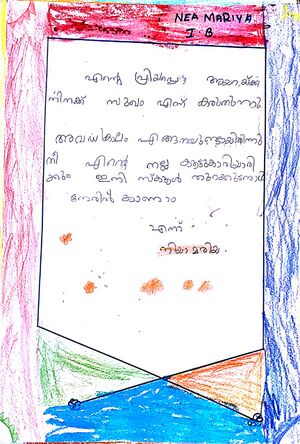 NEA MARIYA
I B
എന്റെ പ്രിയപ്പെട്ട
നിനക്ക് സുഖം എന്ന് കരുതുന്നു
അവധികാലം എങ്ങനയുണ്ടായിരുന്നു
നീ എന്റെ നല്ല കൂട്ടുകാരിയാരി
ക്കും ഇനി സ്കൂൾ തുറക്കുമ്പോൾ
നേരിൽ കാണാം
എന്ന്
നിയാ മരിയ